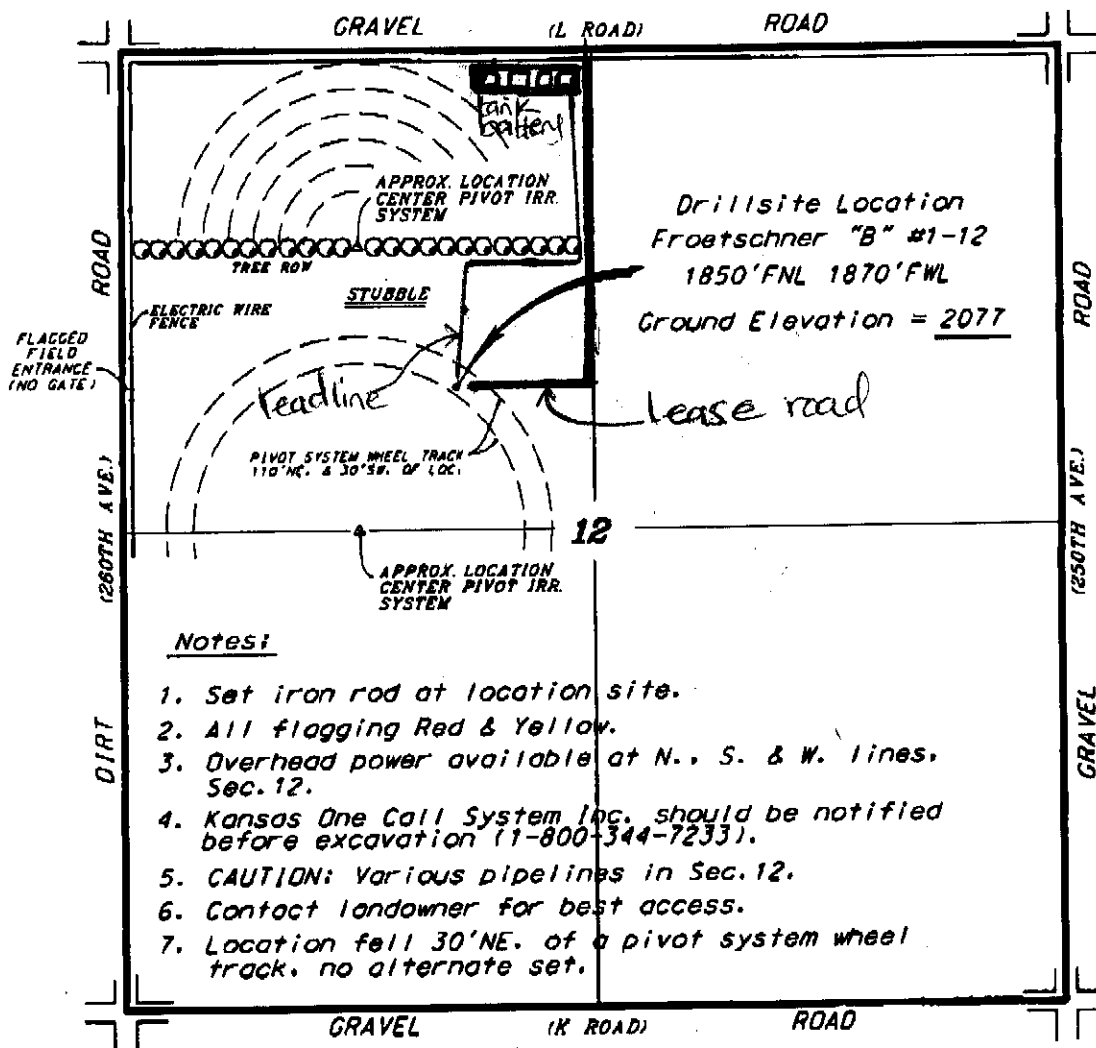 GRAVEL (L ROAD) ROAD
tank
battery
APPROX. LOCATION
CENTER PIVOT IRR.
SYSTEM
Drillsite Location
Froetschner "B" #1-12
1850'FNL 1870'FWL
Ground Elevation = 2077
ROAD
TREE ROW
STUBBLE
ELECTRIC WIRE
FENCE
FLAGGED
FIELD
ENTRANCE
(NO GATE)
ROAD
leadline
lease road
PIVOT SYSTEM WHEEL TRACK
110'NE. & 30'SW. OF LOC.
(260TH AVE.)
12
(250TH AVE.)
APPROX. LOCATION
CENTER PIVOT IRR.
SYSTEM
Notes:
1. Set iron rod at location site.
2. All flagging Red & Yellow.
3. Overhead power available at N., S. & W. lines,
Sec. 12.
4. Kansas One Call System Inc. should be notified
before excavation (1-800-344-7233).
5. CAUTION: Various pipelines in Sec. 12.
6. Contact landowner for best access.
7. Location fell 30'NE. of a pivot system wheel
track, no alternate set.
DIRT
GRAVEL
GRAVEL (K ROAD) ROAD